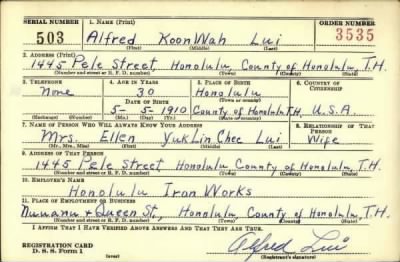 SERIAL NUMBER 1. NAME (Print) ORDER NUMBER
503 Alfred KoonWah Lui 3535
(First) (Middle) (Last)
2. ADDRESS (Print)
1445 Pele Street, Honolulu, County of Honolulu, T.H.
(Number and street or R. F. D. number) (Town) (County) (State)
3. TELEPHONE 4. AGE IN YEARS 5. PLACE OF BIRTH 6. COUNTRY OF CITIZENSHIP
None 30 Honolulu
DATE OF BIRTH (Town or county)
5-5-1910 County of Honolulu T.H. U.S.A.
(Exchange) (Number) (Mo.) (Day) (Yr.) (State or country)
7. NAME OF PERSON WHO WILL ALWAYS KNOW YOUR ADDRESS 8. RELATIONSHIP OF THAT PERSON
Mrs. Ellen YukLin Chee Lui Wife
(Mr., Mrs., Miss) (First) (Middle) (Last)
9. ADDRESS OF THAT PERSON
1445 Pele Street, Honolulu County of Honolulu, T.H.
(Number and street or R. F. D. number) (Town) (County) (State)
10. EMPLOYER'S NAME
Honolulu Iron Works
11. PLACE OF EMPLOYMENT OR BUSINESS
Nuuanu & Queen St., Honolulu, County of Honolulu, T.H.
(Number and street or R. F. D. number) (Town) (County) (State)
I AFFIRM THAT I HAVE VERIFIED ABOVE ANSWERS AND THAT THEY ARE TRUE.
REGISTRATION CARD
D. S. S. Form 1 Alfred Lui
(Registrant's signature)